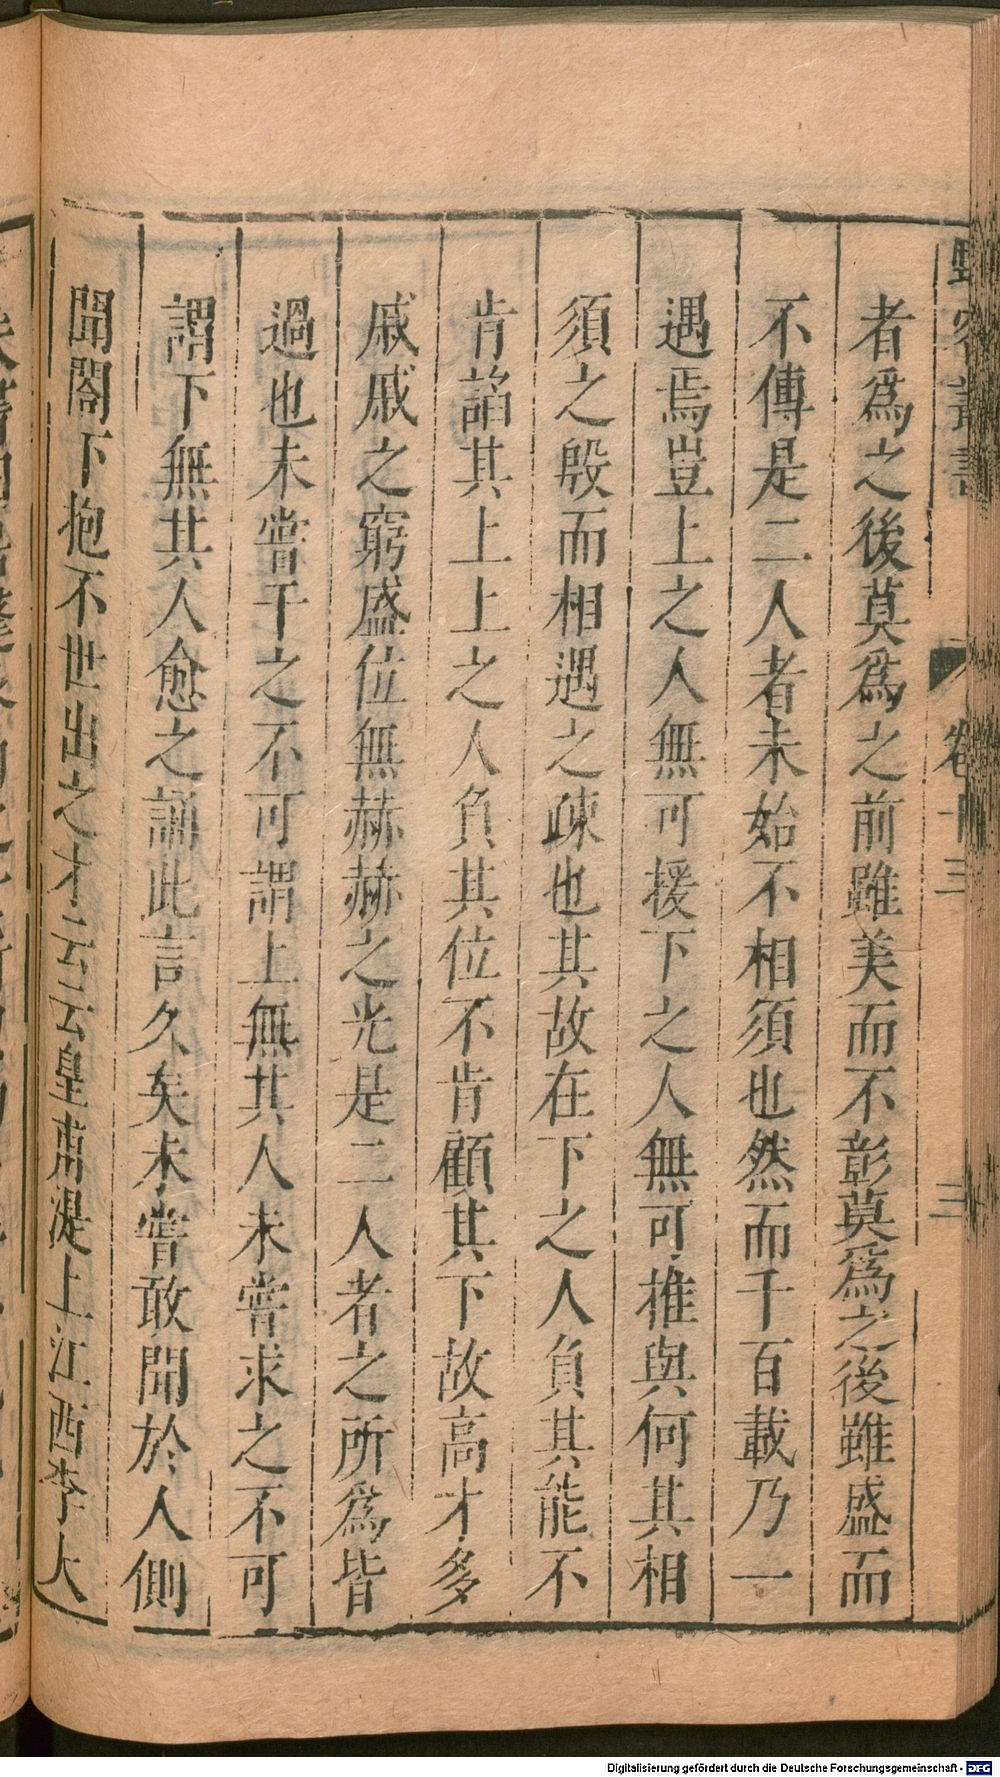 野客叢書
卷十三
三
者爲之後莫爲之前雖美而不彰莫爲之後雖盛而
不傳是二人者未始不相須也然而千百載乃一
遇焉豈上之人無可援下之人無可推與何其相
須之殷而相遇之疎也其故在下之人負其能不
肯諂其上上之人負其位不肯顧其下故高才多
戚戚之窮盛位無赫赫之光是二人者之所爲皆
過也未嘗干之不可謂上無其人未嘗求之不可
謂下無其人愈之誦此言久矣未嘗敢聞於人側
聞閤下抱不世出之才云云皇甫湜上江西李大
Digitalisierung gefördert durch die Deutsche Forschungsgemeinschaft - DFG